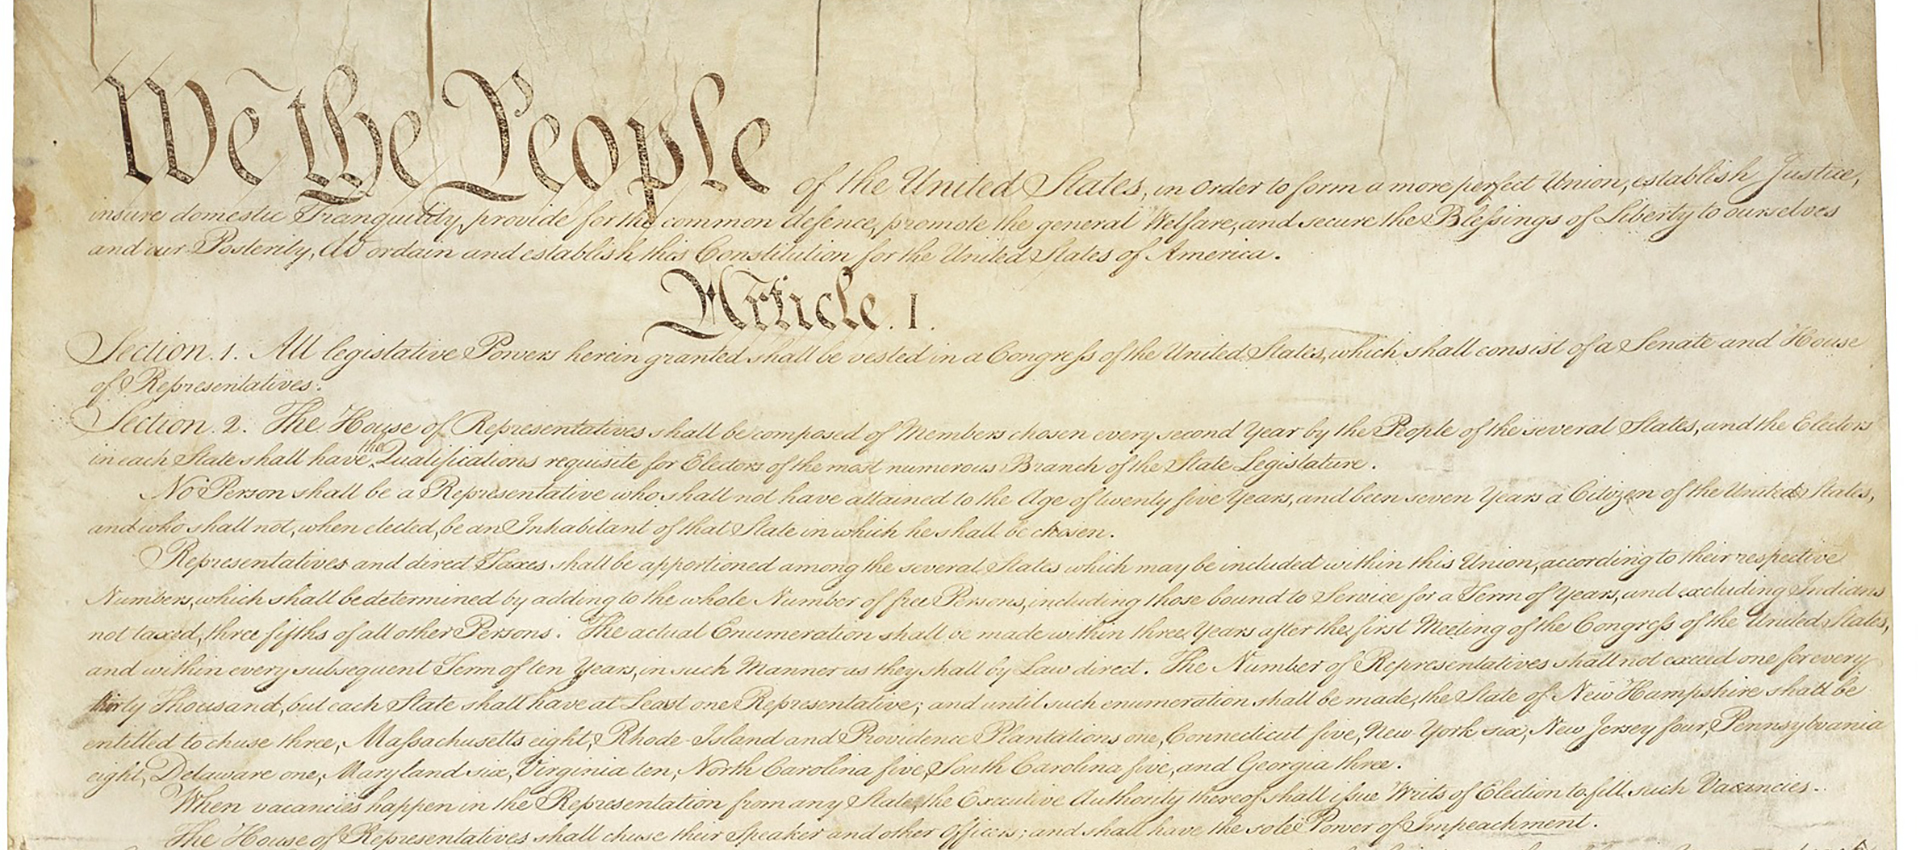 We the People of the United States, in Order to form a more perfect Union, establish Justice,
insure domestic Tranquility, provide for the common defence, promote the general Welfare, and secure the Blessings of Liberty to ourselves
and our Posterity, do ordain and establish this Constitution for the United States of America.
Article. I.
Section. 1. All legislative Powers herein granted shall be vested in a Congress of the United States, which shall consist of a Senate and House
of Representatives.
Section. 2. The House of Representatives shall be composed of Members chosen every second Year by the People of the several States, and the Electors
in each State shall have the Qualifications requisite for Electors of the most numerous Branch of the State Legislature.
No Person shall be a Representative who shall not have attained to the Age of twenty five Years, and been seven Years a Citizen of the United States,
and who shall not, when elected, be an Inhabitant of that State in which he shall be chosen.
Representatives and direct Taxes shall be apportioned among the several States which may be included within this Union, according to their respective
Numbers, which shall be determined by adding to the whole Number of free Persons, including those bound to Service for a Term of Years, and excluding Indians
not taxed, three fifths of all other Persons. The actual Enumeration shall be made within three Years after the first Meeting of the Congress of the United States,
and within every subsequent Term of ten Years, in such Manner as they shall by Law direct. The Number of Representatives shall not exceed one for every
thirty Thousand, but each State shall have at Least one Representative; and until such enumeration shall be made, the State of New Hampshire shall be
entitled to chuse three, Massachusetts eight, Rhode-Island and Providence Plantations one, Connecticut five, New-York six, New Jersey four, Pennsylvania
eight, Delaware one, Maryland six, Virginia ten, North Carolina five, South Carolina five, and Georgia three.
When vacancies happen in the Representation from any State, the Executive Authority thereof shall issue Writs of Election to fill such Vacancies.
The House of Representatives shall chuse their Speaker and other Officers; and shall have the sole Power of Impeachment.